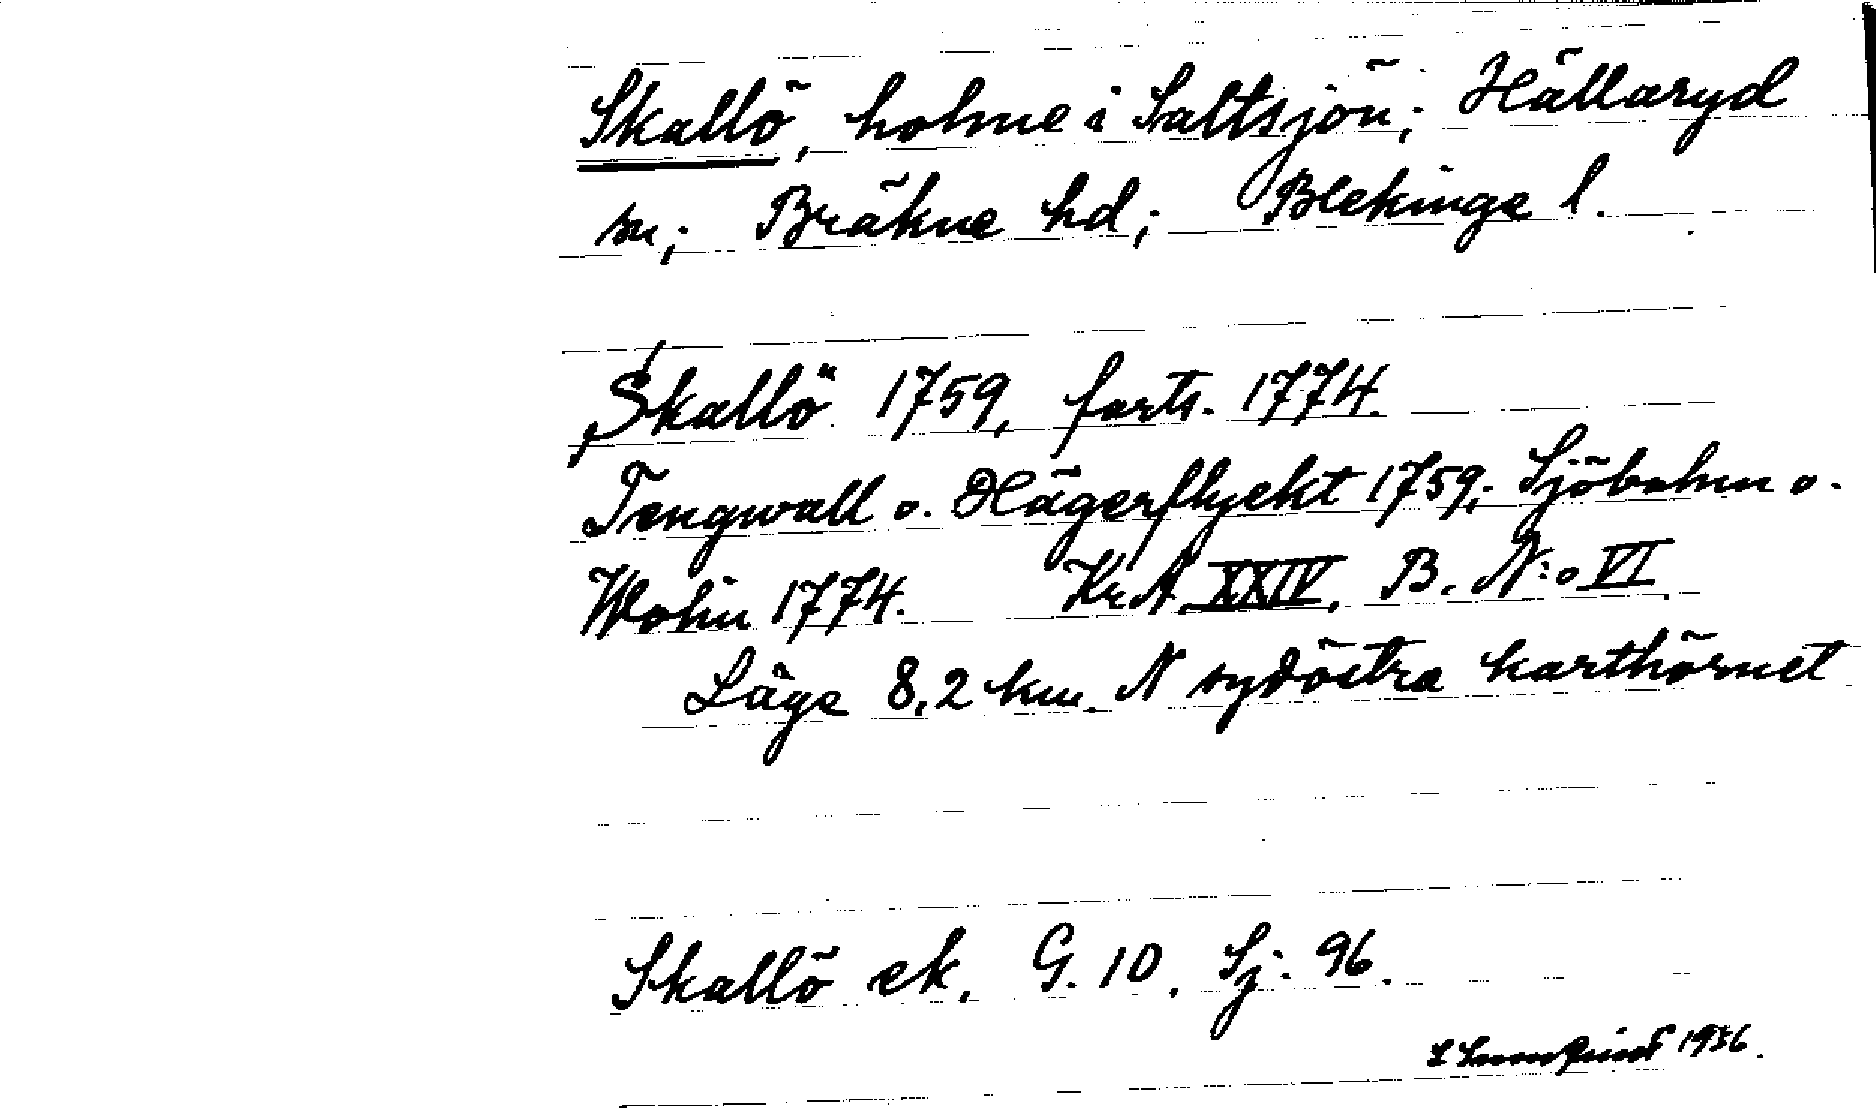 Skallö, holme i Saltsjön; Hällaryd
sn; Bräkne hd; Blekinge l.
"Skallö" 1759, forts. 1774.
Tengwall o. Hägerflycht 1759; Sjöbohm o.
Wohn 1774. KrA XXIV. B. N:o VI.
Läge 8,2 km. N sydöstra karthörnet
Skallö ek. G. 10. Sj. 96.
1936.